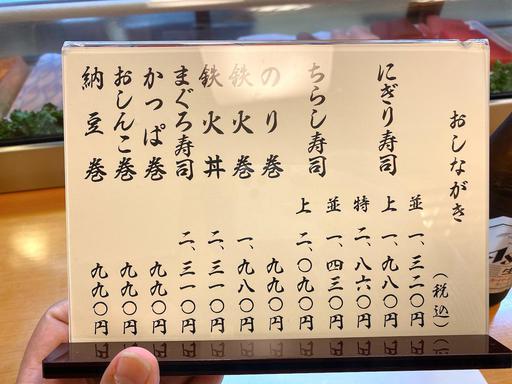 おしながき
(税込)
にぎり寿司 並 一、三二〇円
上 一、九八〇円
特 二、八六〇円
ちらし寿司 並 一、四三〇円
上 二、〇九〇円
のり巻 九九〇円
鉄火巻 一、九八〇円
鉄火丼 二、三一〇円
まぐろ寿司 二、三一〇円
かっぱ巻 九九〇円
おしんこ巻 九九〇円
納豆巻 九九〇円